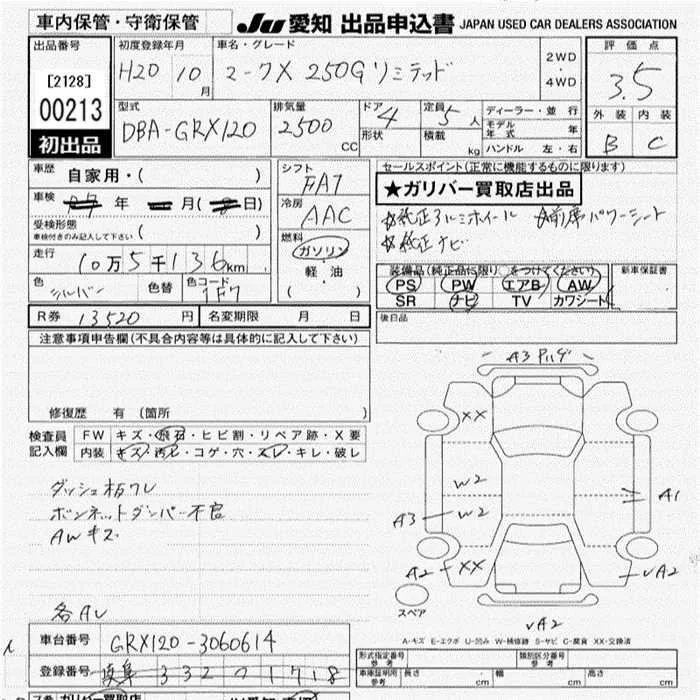 車内保管・守衛保管 JU 愛知 出品申込書 JAPAN USED CAR DEALERS ASSOCIATION
出品番号 初度登録年月 車名・グレード 2WD・4WD 評価点
[2128] H20 10月 マークX 250Gリミテッド 3.5
00213 型式 排気量 ドア 4 定員 5人 ディーラー・並行 外装 内装
初出品 DBA-GRX120 2500cc 形状 積載 kg モデル年式 年 ハンドル 左・右 B C
車歴 自家用・( ) シフト FAT セールスポイント(正常に機能するものに限ります)
★ガリバー買取店出品
車検 年 月( 日) 冷房 AAC
☆純正アルミホイール ☆前席パワーシート
☆純正ナビ
受検形態 車検付きのみ記入して下さい ( ) 燃料 ガソリン・軽・油 ( )
走行 10万5千136km
装備品(純正品に限り○をつけてください) 新車保証書
PS PW エアB AW
SR ナビ TV カワシート
色 シルバー 色替 色コード 1F7
R券 13520円 名変期限 月 日 後日品
注意事項申告欄(不具合内容等は具体的に記入して下さい)
修復歴 有 (箇所 )
検査員記入欄 FW キズ・飛石・ヒビ割・リペア跡・X要
内装 キズ・汚レ・コゲ・穴・スレ・キレ・破レ
ダッシュ板ワレ
ボンネットダンパー不良
AWキズ
各AU
A3
XX
W2
W2
A3
A1
A2 XX
VA2
スペア
VA2
A-キズ E-エクボ U-凹み W-補修跡 S-サビ C-腐食 XX-交換済
車台番号 GRX120-3060614
形式指定番号 参考 類別区分番号 参考
登録番号 332 1718
車庫証明用 参考 長さ cm 幅 cm 高さ cm
ガリバー買取店